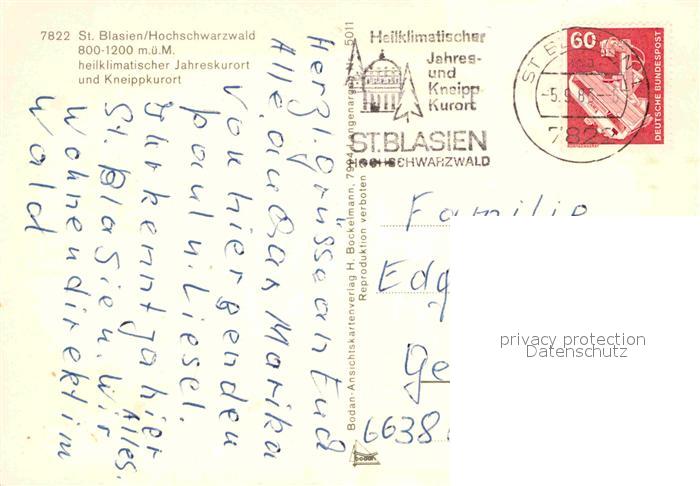 7822 St. Blasien/Hochschwarzwald
800-1200 m.ü.M.
heilklimatischer Jahreskurort
und Kneippkurort
Herzl. Grüsse an Euch
Alle, auch an Marika
von hier senden
Paul u. Liesel.
Ihr kennt ja hier
Alles.
St. Blasien. Wir
wohnen direkt im
Wald
Bodan-Ansichtskartenverlag H. Bockelmann, 7994 Langenargen Nr. 5011
Reproduktion verboten
bodan
Heilklimatischer
Jahres-
und
Kneipp
Kurort
ST. BLASIEN
HOCHSCHWARZWALD
ST BL
-5.9.8
7822
60
DEUTSCHE BUNDESPOST
Familie
Edg
Ge
6638
privacy protection
Datenschutz